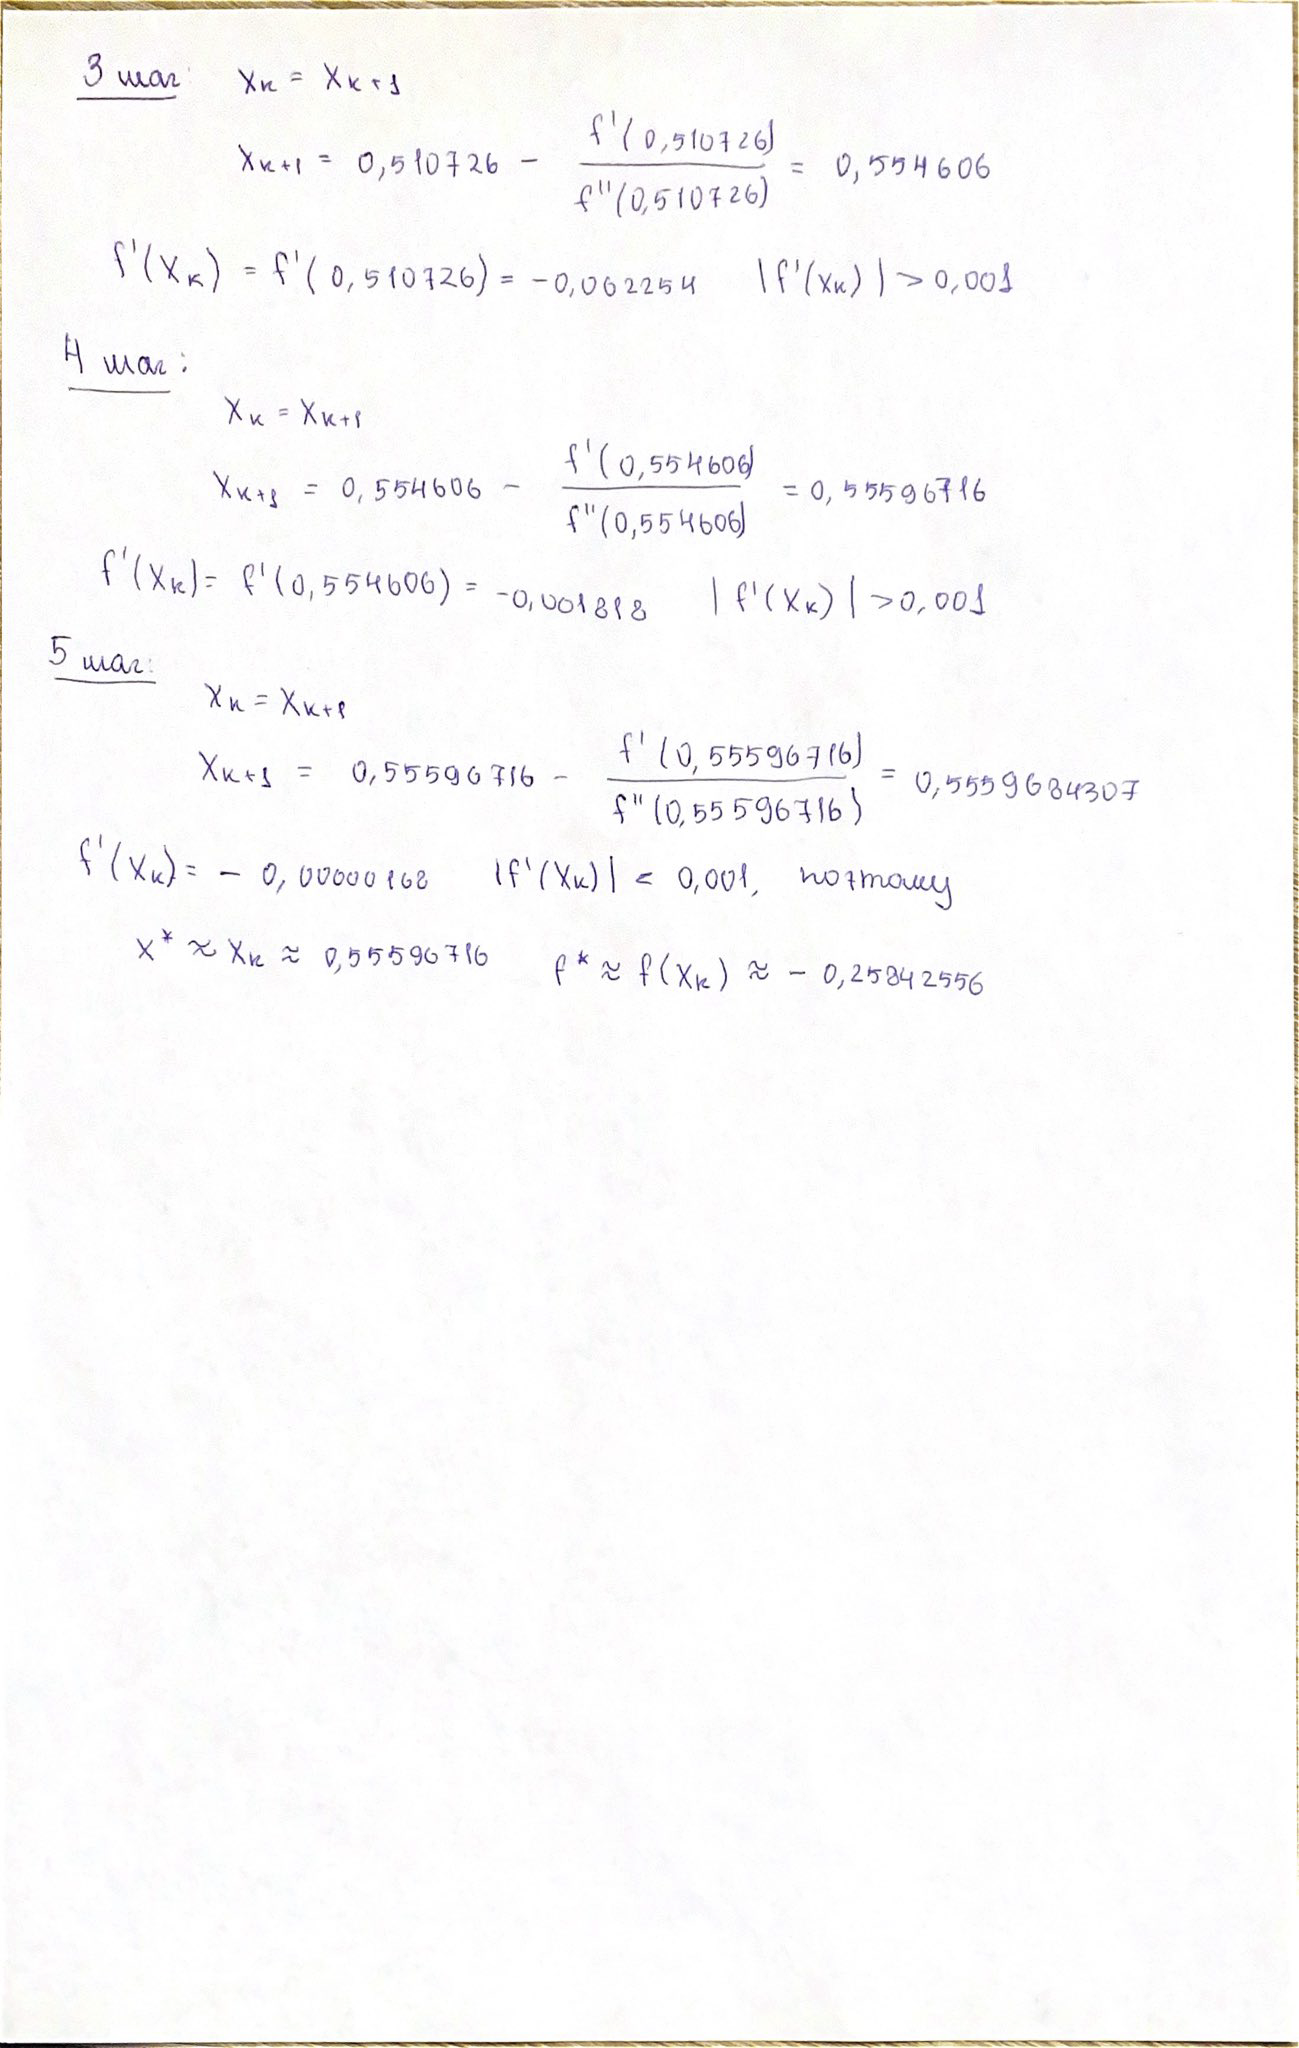 3 шаг: xк = xк+1
xк+1 = 0,510726 - f'(0,510726) / f''(0,510726) = 0,554606
f'(xк) = f'(0,510726) = -0,062254 |f'(xк)| > 0,001
4 шаг:
xк = xк+1
xк+1 = 0,554606 - f'(0,554606) / f''(0,554606) = 0,55596716
f'(xк) = f'(0,554606) = -0,001818 |f'(xк)| > 0,001
5 шаг:
xк = xк+1
xк+1 = 0,55596716 - f'(0,55596716) / f''(0,55596716) = 0,5559684307
f'(xк) = - 0,00000168 |f'(xк)| < 0,001, поэтому
x* ≈ xк ≈ 0,55596716 f* ≈ f(xк) ≈ - 0,25842556